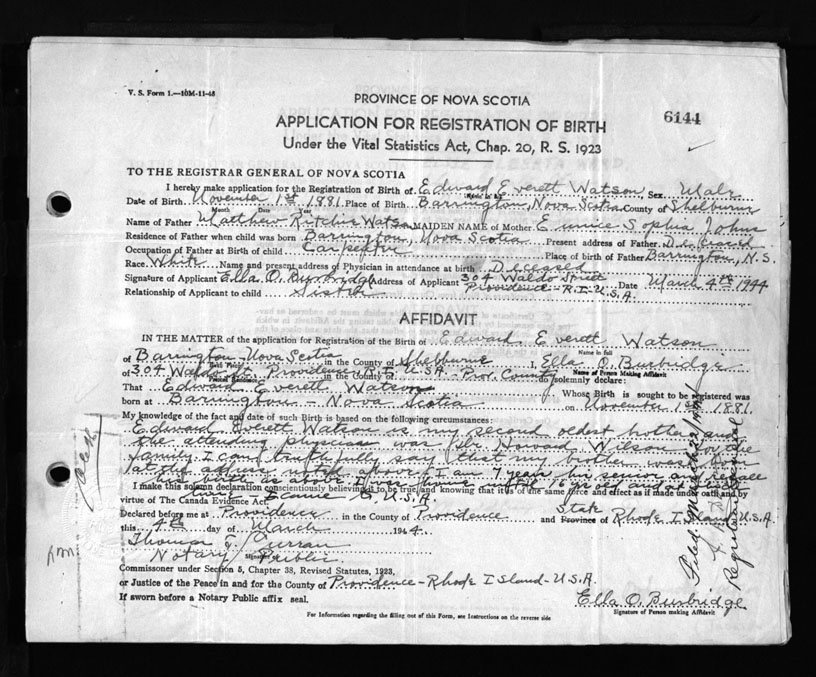 V. S. Form 1.—10M-11-43
PROVINCE OF NOVA SCOTIA
6144
APPLICATION FOR REGISTRATION OF BIRTH
Under the Vital Statistics Act, Chap. 20, R. S. 1923
TO THE REGISTRAR GENERAL OF NOVA SCOTIA
I hereby make application for the Registration of Birth of Edward Everett Watson, Sex Male
Date of Birth November 1st 1881 Place of Birth Barrington, Nova Scotia County of Shelburn
Month Date Year
Name of Father Matthew Ritchie Watson MAIDEN NAME of Mother Eunice Sophia Johns
Residence of Father when child was born Barrington, Nova Scotia Present address of Father
Occupation of Father at Birth of child Carpenter Place of birth of Father Barrington, N.S.
Race White Name and present address of Physician in attendance at birth Deceased
Signature of Applicant Ella O. Burbidge Address of Applicant 304 Waldo Street Date March 4th 1944
Relationship of Applicant to child Sister Providence - R.I. U.S.A.
AFFIDAVIT
IN THE MATTER of the application for Registration of the Birth of Edward Everett Watson
Name in full
of Barrington - Nova Scotia in the County of Shelburne I, Ella O. Burbidge
Birth Place Name of Person Making Affidavit
of 304 Waldo St, Providence, R.I. USA in the County of Prov. County do solemnly declare:
That Edward Everett Watson Whose Birth is sought to be registered was
born at Barrington - Nova Scotia on November 1st 1881.
My knowledge of the fact and date of such Birth is based on the following circumstances:
Edward Everett Watson is my second oldest brother and
the attending physician was Dr Howard Wilson for the
family. I can truthfully say that my brother was born
at the address noted above. I am 7 years his senior and
his birth is above. I was home until 16 years
I make this solemn declaration conscientiously believing it to be true, and knowing that it is of the same force and effect as if made under oath and by
virtue of The Canada Evidence Act. U.S.A.
Declared before me at Providence in the County of Providence and Province of State Rhode Island U.S.A.
this 4th day of March 1944
Thomas F. Curran
Notary Public
Commissoner under Section 5, Chapter 38, Revised Statutes, 1923,
or Justice of the Peace in and for the County of Providence - Rhode Island - U.S.A.
If sworn before a Notary Public affix seal.
Ella O. Burbidge
Signature of Person making Affidavit
For Information regarding the filling out of this Form, see Instructions on the reverse side
Filed March
Registrar General